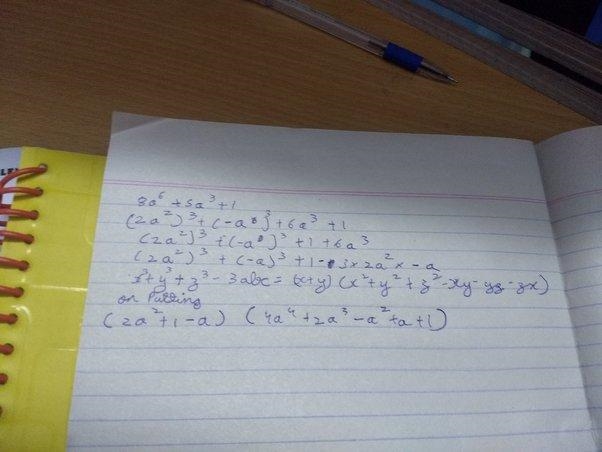 8a⁶ + 5a³ + 1
(2a²)³ + (-a)³ + 6a³ + 1
(2a²)³ + (-a)³ + 1 + 6a³
(2a²)³ + (-a)³ + 1 - 3 × 2a² × -a
x³ + y³ + z³ - 3abc = (x+y) (x² + y² + z² - xy - yz - zx)
on Putting
(2a² + 1 - a) (4a⁴ + 2a³ - a² + a + 1)